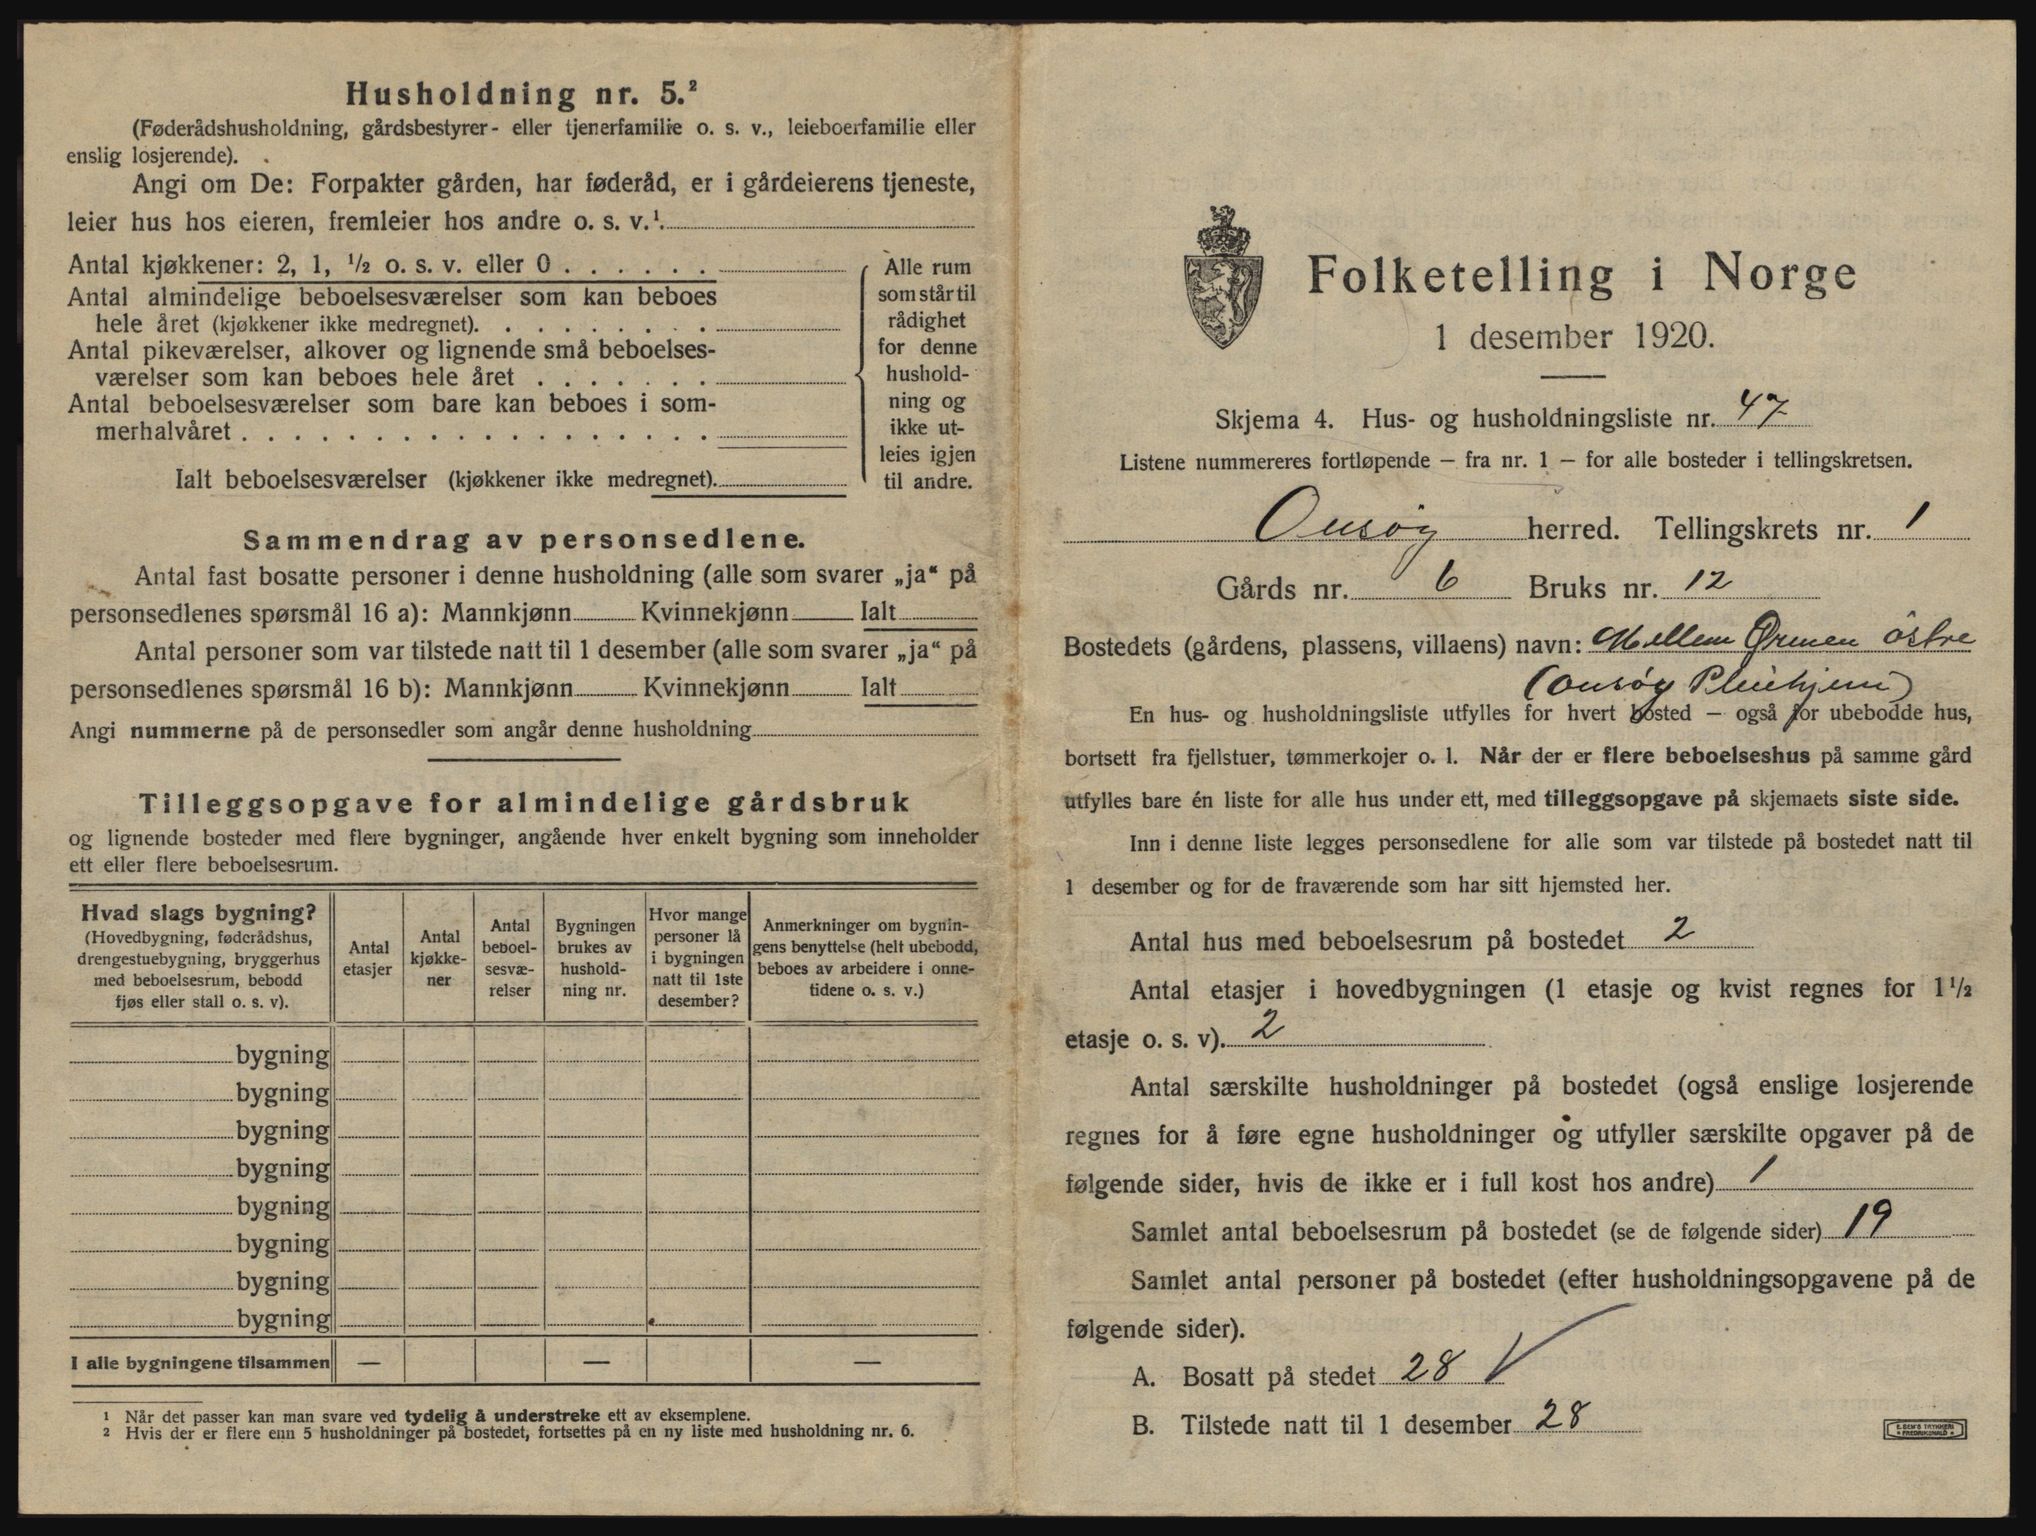 Husholdning nr. 5.²
(Føderådshusholdning, gårdsbestyrer- eller tjenerfamilie o. s. v., leieboerfamilie eller
enslig losjerende).
Angi om De: Forpakter gården, har føderåd, er i gårdeierens tjeneste,
leier hus hos eieren, fremleier hos andre o. s. v.¹.
Antal kjøkkener: 2, 1, ½ o. s. v. eller 0 . . . . . .
Antal almindelige beboelsesværelser som kan beboes
hele året (kjøkkener ikke medregnet). . . . . . . . .
Antal pikeværelser, alkover og lignende små beboelses-
værelser som kan beboes hele året . . . . . . .
Antal beboelsesværelser som bare kan beboes i som-
merhalvåret . . . . . . . . . . . . . . . . . .
Ialt beboelsesværelser (kjøkkener ikke medregnet).
Alle rum
som står til
rådighet
for denne
hushold-
ning og
ikke ut-
leies igjen
til andre.
Sammendrag av personsedlene.
Antal fast bosatte personer i denne husholdning (alle som svarer „ja“ på
personsedlenes spørsmål 16 a): Mannkjønn Kvinnekjønn Ialt
Antal personer som var tilstede natt til 1 desember (alle som svarer „ja“ på
personsedlenes spørsmål 16 b): Mannkjønn Kvinnekjønn Ialt
Angi nummerne på de personsedler som angår denne husholdning
Tilleggsopgave for almindelige gårdsbruk
og lignende bosteder med flere bygninger, angående hver enkelt bygning som inneholder
ett eller flere beboelsesrum.
Hvad slags bygning?
(Hovedbygning, føderådshus,
drengestuebygning, bryggerhus
med beboelsesrum, bebodd
fjøs eller stall o. s. v).
Antal
etasjer
Antal
kjøkke-
ner
Antal
beboel-
sesvæ-
relser
Bygningen
brukes av
hushold-
ning nr.
Hvor mange
personer lå
i bygningen
natt til 1ste
desember?
Anmerkninger om bygnin-
gens benyttelse (helt ubebodd,
beboes av arbeidere i onne-
tidene o. s. v.)
bygning
bygning
bygning
bygning
bygning
bygning
bygning
bygning
I alle bygningene tilsammen — — —
¹ Når det passer kan man svare ved tydelig å understreke ett av eksemplene.
² Hvis der er flere enn 5 husholdninger på bostedet, fortsettes på en ny liste med husholdning nr. 6.
Folketelling i Norge
1 desember 1920.
Skjema 4. Hus- og husholdningsliste nr. 47
Listene nummereres fortløpende – fra nr. 1 – for alle bosteder i tellingskretsen.
Onsøy herred. Tellingskrets nr. 1
Gårds nr. 6 Bruks nr. 12
Bostedets (gårdens, plassens, villaens) navn: Mellem Ørmen östre
(Onsøy Pleiehjem)
En hus- og husholdningsliste utfylles for hvert bosted – også for ubebodde hus,
bortsett fra fjellstuer, tømmerkojer o. l. Når der er flere beboelseshus på samme gård
utfylles bare én liste for alle hus under ett, med tilleggsopgave på skjemaets siste side.
Inn i denne liste legges personsedlene for alle som var tilstede på bostedet natt til
1 desember og for de fraværende som har sitt hjemsted her.
Antal hus med beboelsesrum på bostedet 2
Antal etasjer i hovedbygningen (1 etasje og kvist regnes for 1½
etasje o. s. v). 2
Antal særskilte husholdninger på bostedet (også enslige losjerende
regnes for å føre egne husholdninger og utfyller særskilte opgaver på de
følgende sider, hvis de ikke er i full kost hos andre) 1
Samlet antal beboelsesrum på bostedet (se de følgende sider) 19
Samlet antal personer på bostedet (efter husholdningsopgavene på de
følgende sider).
A. Bosatt på stedet 28
B. Tilstede natt til 1 desember 28